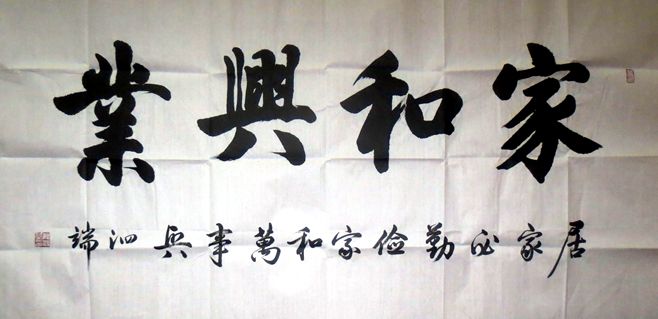 家和興業
居家必勤俭家和萬事兴泗端